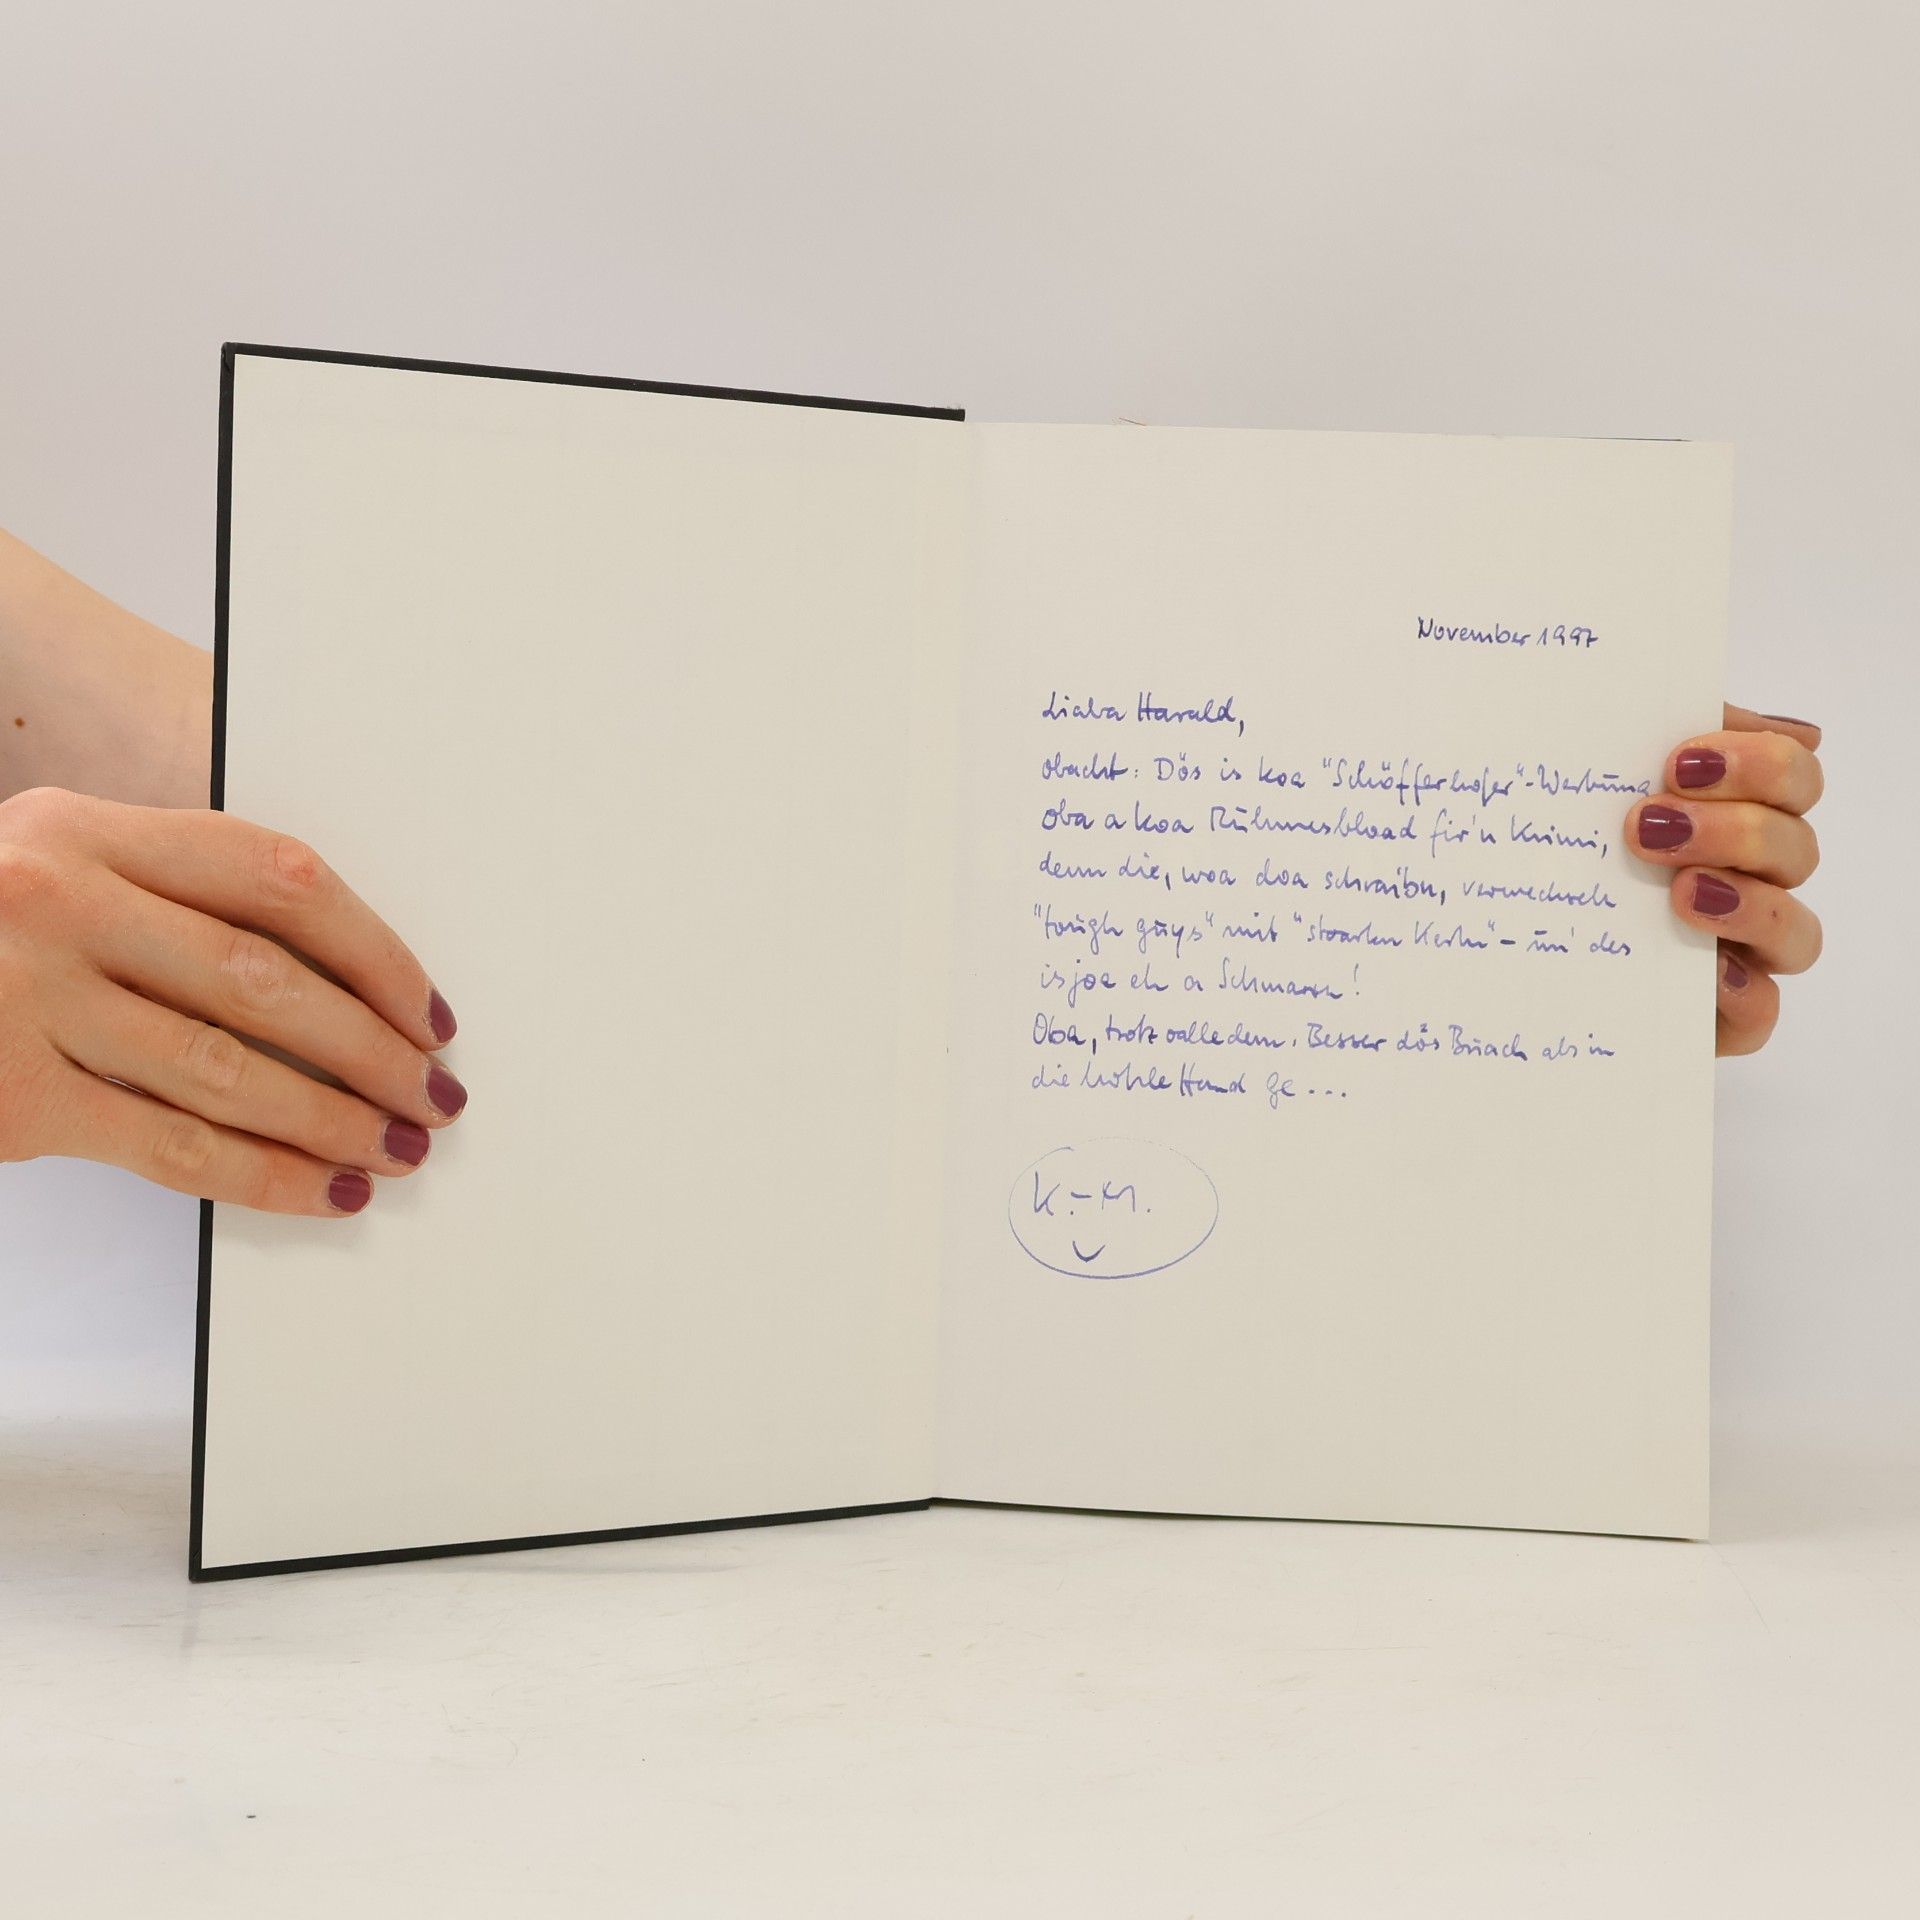 November 1997
Liaba Harald,
obacht: Dös is koa "Schöfferhofer"-Werbung
oba a koa Rühmesbload fir'n Krimi,
denn die, woa doa schraibn, verwechseln
"tough guys" mit "stoarkn Kerln" – un' des
is joa eh a Schmarrn!
Oba, trotz oalledem. Besser dös Buach als in
die hohle Hand ge...
K.-M.